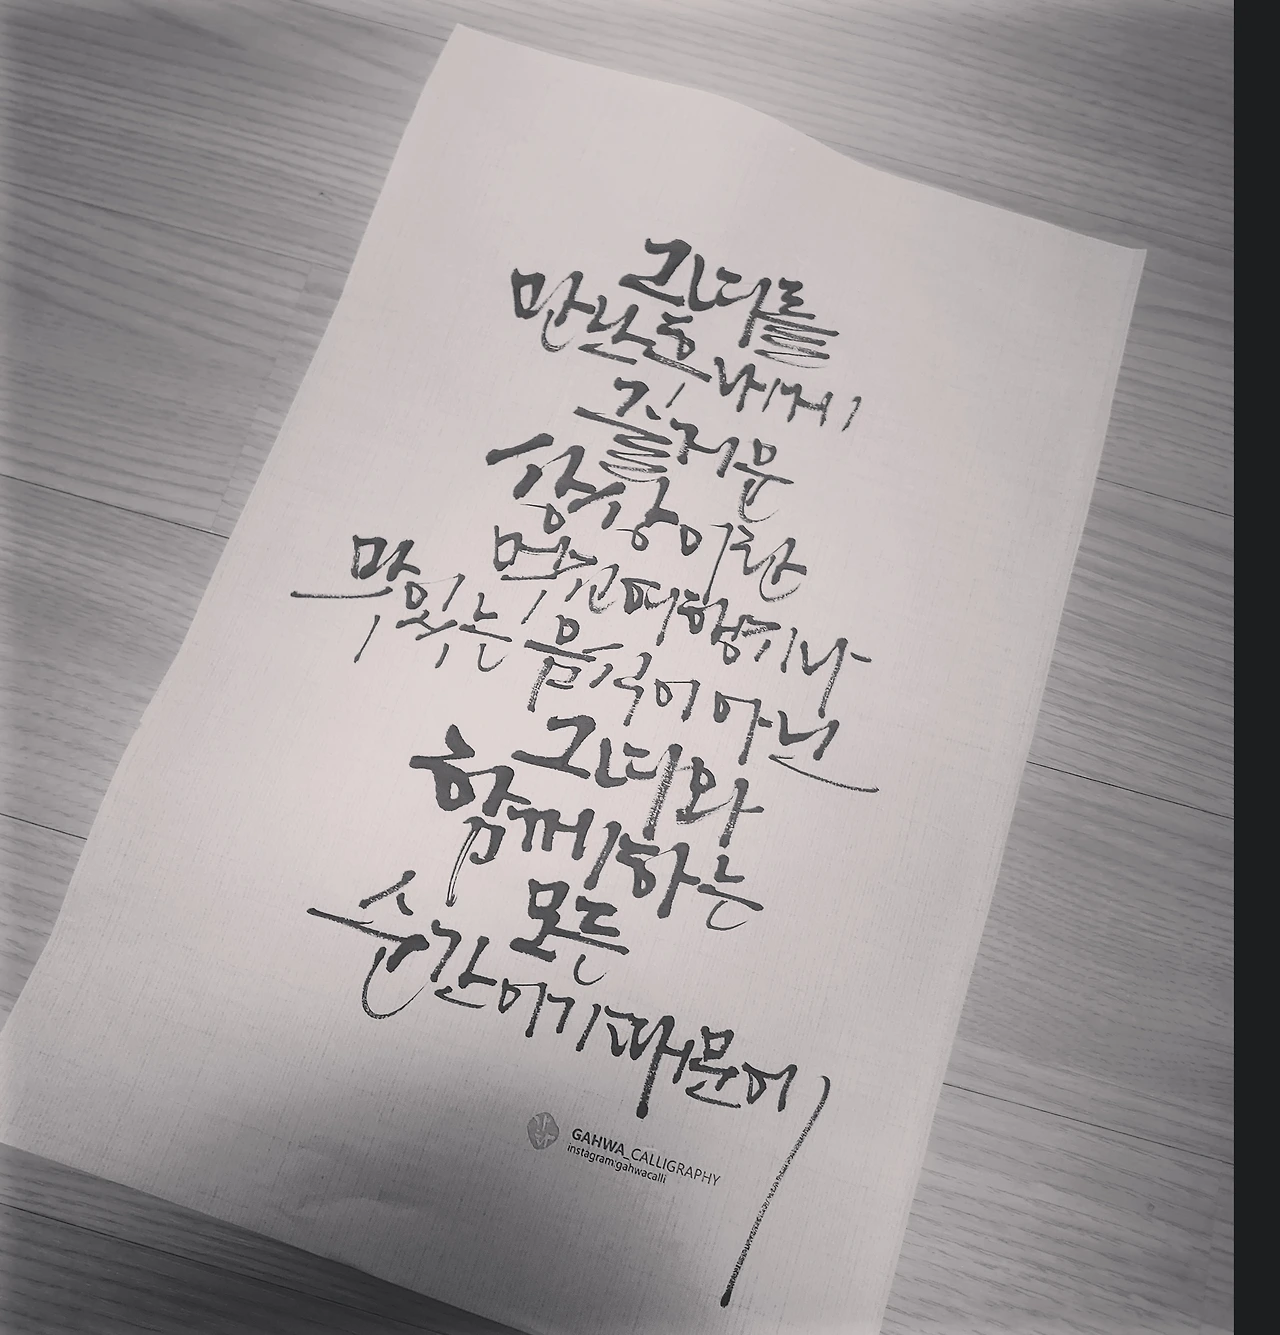 그대를
만난 후 내게
즐거운
상상이란
멋진 여행지나
맛있는 음식이 아닌
그대와
함께하는
모든
순간이기 때문에
GAHWA_CALLIGRAPHY
instagram:gahwacalli